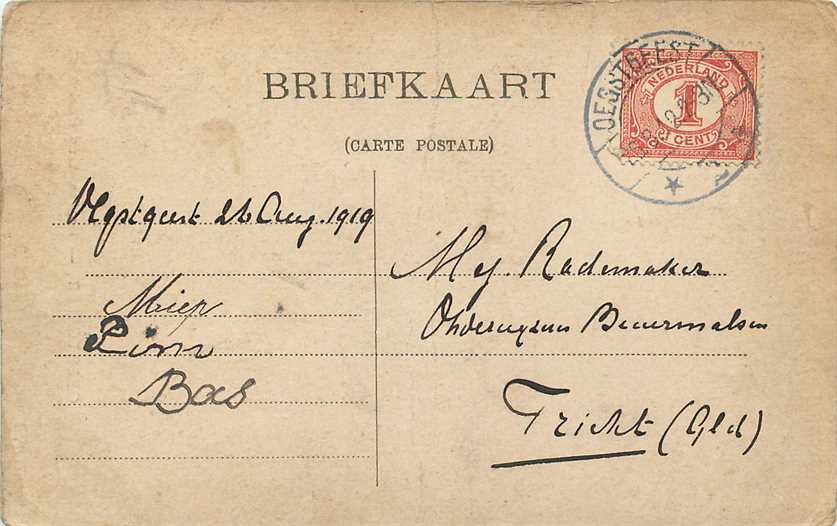 BRIEFKAART
(CARTE POSTALE)
OEGSTGEEST
NEDERLAND
1
CENT
Oegstgeest 26 Aug. 1919
Miep
Pim
Bas
Mej. Rademaker
Onderwyzeres Buurmalsen
Tricht (Gld)